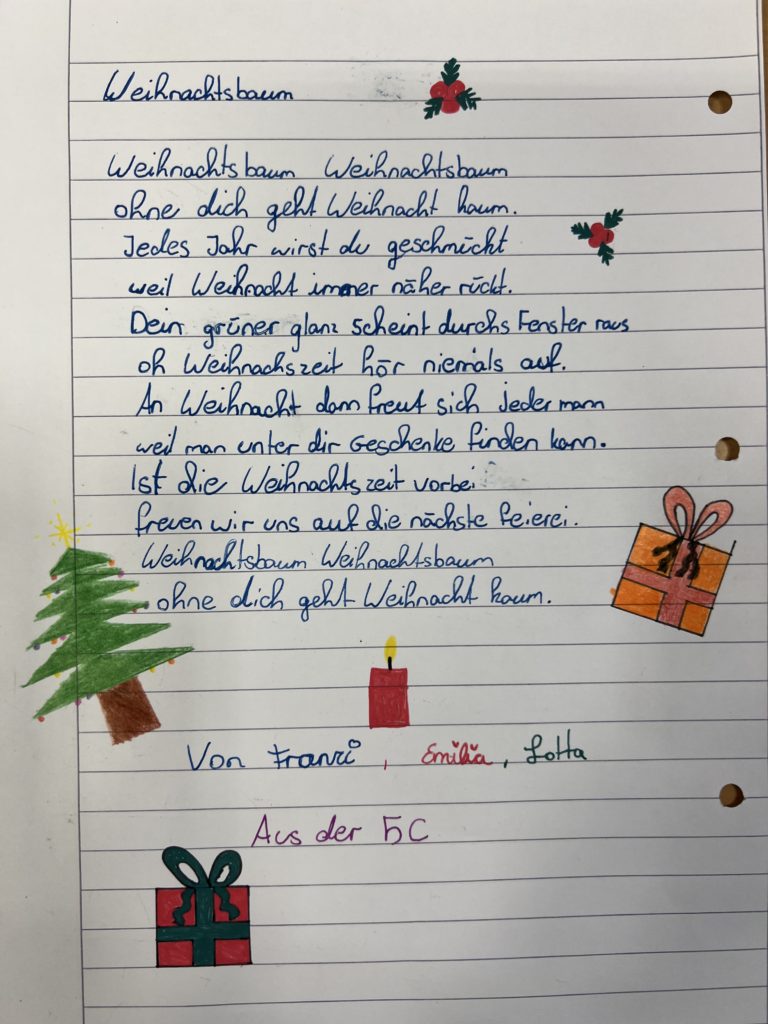 Weihnachtsbaum
Weihnachtsbaum Weihnachtsbaum
ohne dich geht Weihnacht kaum.
Jedes Jahr wirst du geschmückt
weil Weihnacht immer näher rückt.
Dein grüner glanz scheint durchs Fenster raus
oh Weihnachszeit hör niemals auf.
An Weihnacht dann freut sich jedermann
weil man unter dir Geschenke finden kann.
Ist die Weihnachtszeit vorbei
freuen wir uns auf die nächste feierei.
Weihnachtsbaum Weihnachtsbaum
ohne dich geht Weihnacht kaum.
Von Franzi, Emilia, Lotta
Aus der 5C